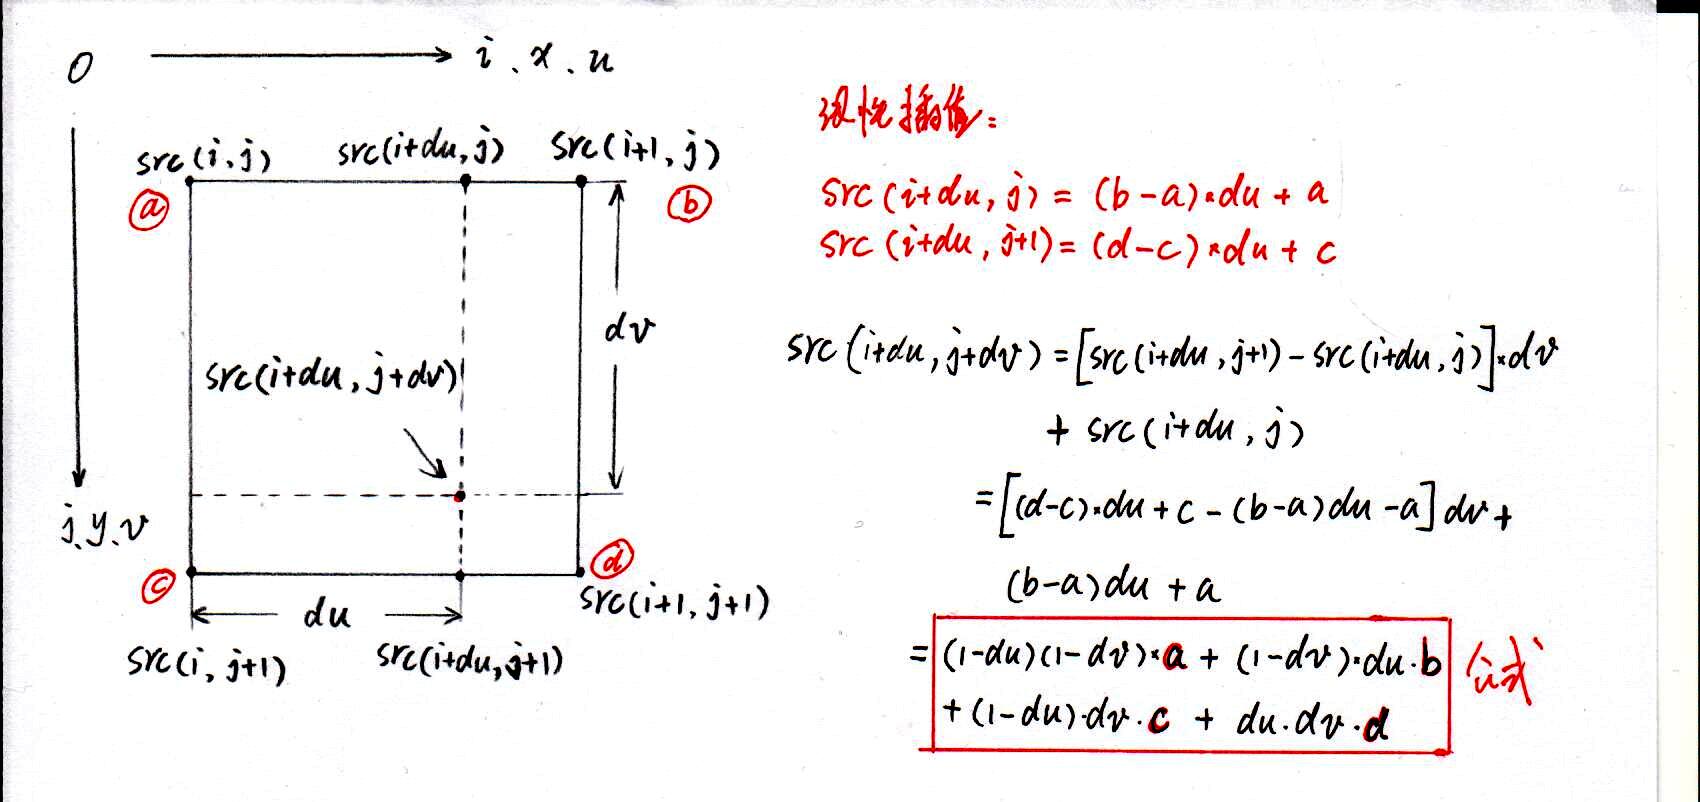 O
i . x . u
src(i,j)
src(i+du,j)
src(i+1,j)
ⓐ
ⓑ
dv
src(i+du, j+dv)
j.y.v
ⓒ
ⓓ
du
src(i+1, j+1)
src(i, j+1)
src(i+du, j+1)
线性插值:
src(i+du, j) = (b-a)*du + a
src(i+du, j+1) = (d-c)*du + c
src(i+du, j+dv) = [src(i+du, j+1) - src(i+du, j)]*dv
+ src(i+du, j)
= [(d-c)*du + c - (b-a)du - a]dv +
(b-a)du + a
= (1-du)(1-dv)*a + (1-dv)*du·b
+ (1-du)·dv·c + du·dv·d
公式